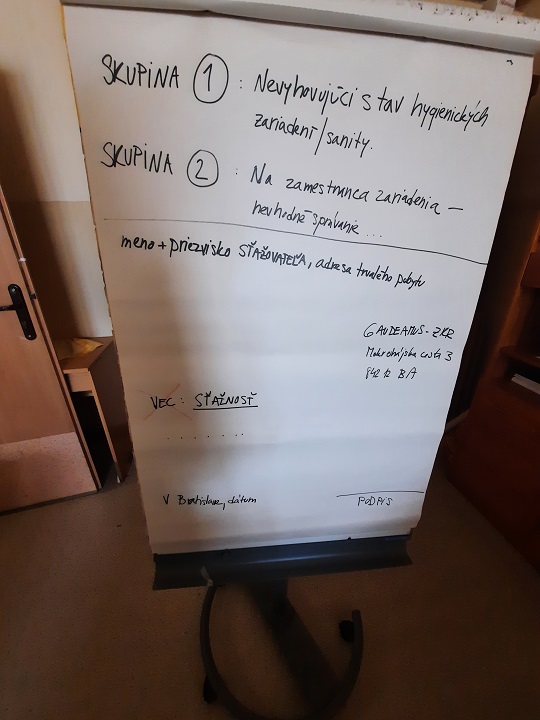 SKUPINA 1 : Nevyhovujúci stav hygienických
zariadení/sanity.
SKUPINA 2 : Na zamestnanca zariadenia –
nevhodné správanie ...
meno + priezvisko SŤAŽOVATEĽA, adresa trvalého pobytu
GAUDEAMUS - ZKR
Mokrohájska cesta 3
842 12 BA
VEC: SŤAŽNOSŤ
. . . . . . .
V Bratislave, dátum
PODPIS